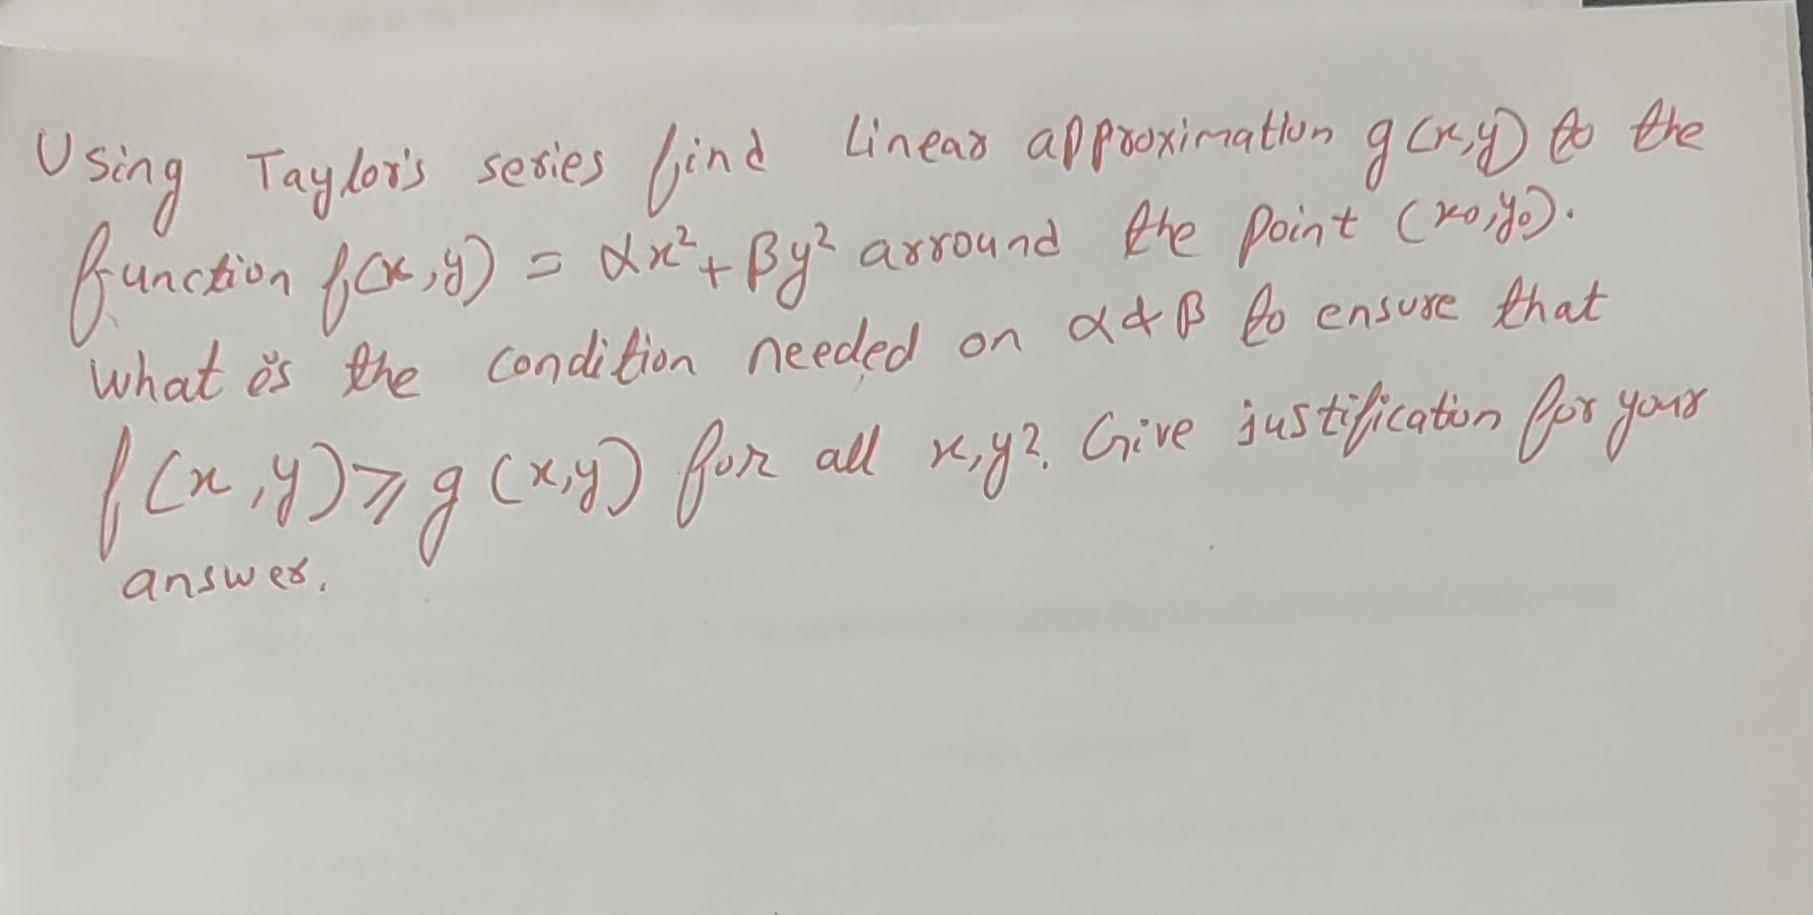 Using Taylor's series find linear approximation g(x,y) to the
function f(x,y) = αx² + βy² arround the point (x₀,y₀).
What is the condition needed on α & β to ensure that
f(x,y) ⩾ g(x,y) for all x,y?. Give justification for your
answer.